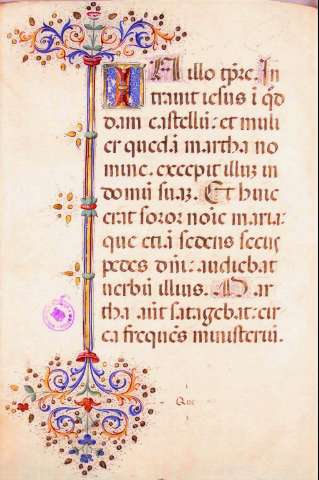 IN illo tp̄re. In
trauit iesus i q̄d
dam castellū: et muli
er quedā martha no
mine. excepit illuz in
domū suaz. Et huic
erat soror noīe maria:
que etiā sedens secus
pedes dn̄i: audiebat
uerbū illius. Mar
tha aūt satagebat: cir
ca frequēs ministeriū.
Que